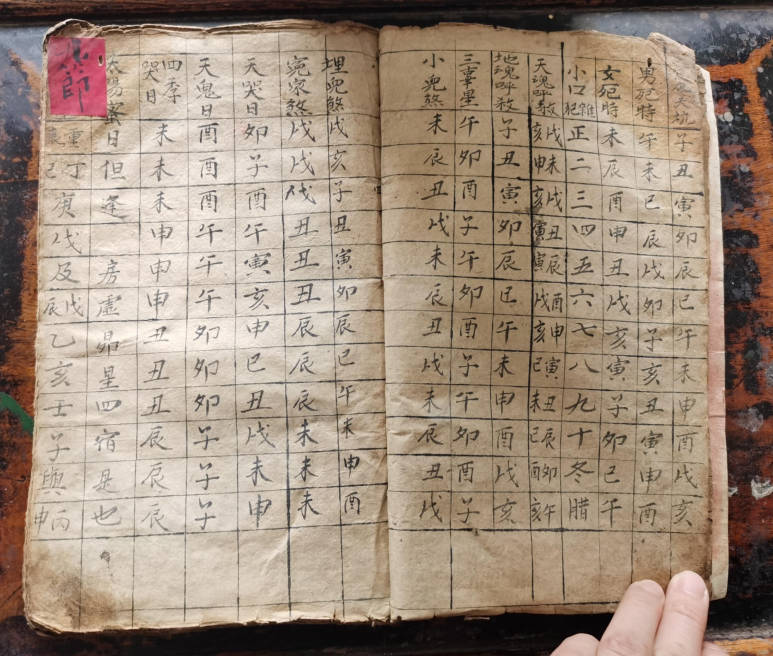 哭坑 子丑寅卯辰巳午未申酉戌亥
男犯時 午未巳辰戌卯子亥丑寅申酉
女犯時 未辰酉申丑戌亥寅子卯巳午
小口雜犯 正二三四五六七八九十冬腊
天魂呼殺 戌亥 未申 戌亥 丑寅 辰寅 酉戌 申亥 寅巳 丑未 辰巳 卯酉 午亥
地魂呼殺 子丑寅卯辰巳午未申酉戌亥
三重星 午卯酉子午卯酉子午卯酉子
小兒煞 未辰丑戌未辰丑戌未辰丑戌
埋兒煞 戌亥子丑寅卯辰巳午未申酉
寃家煞 戌戌戌丑丑丑辰辰辰未未未
天哭日 卯子酉午寅亥申巳丑戌未申
天鬼日 酉酉酉午午午卯卯卯子子子
四季哭日 未未未申申申丑丑丑辰辰辰
日但逢 房虛昴星四宿是也
重丁巳庚戌及戊辰乙亥壬子與丙申
郎